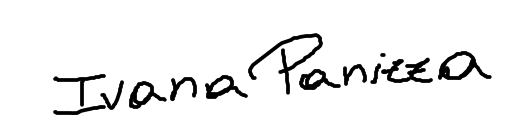 Ivana Panizza